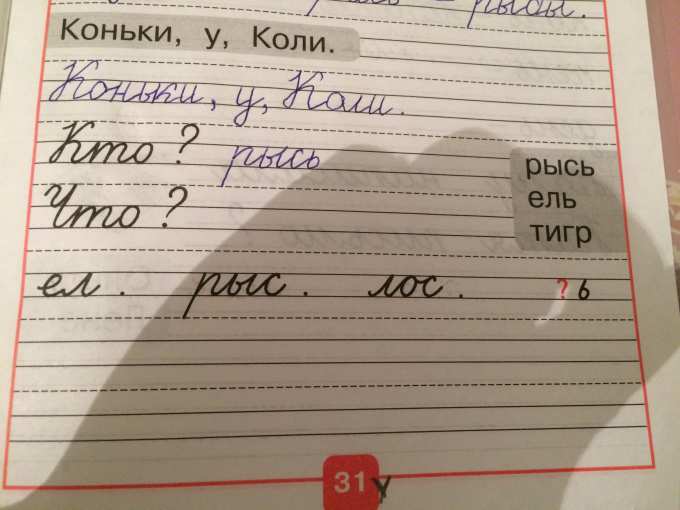 рыбы.
Коньки, у, Коли.
Коньки, у, Коли.
Кто? рысь
Что?
рысь
ель
тигр
ел. рыс. лос. ? ь
31